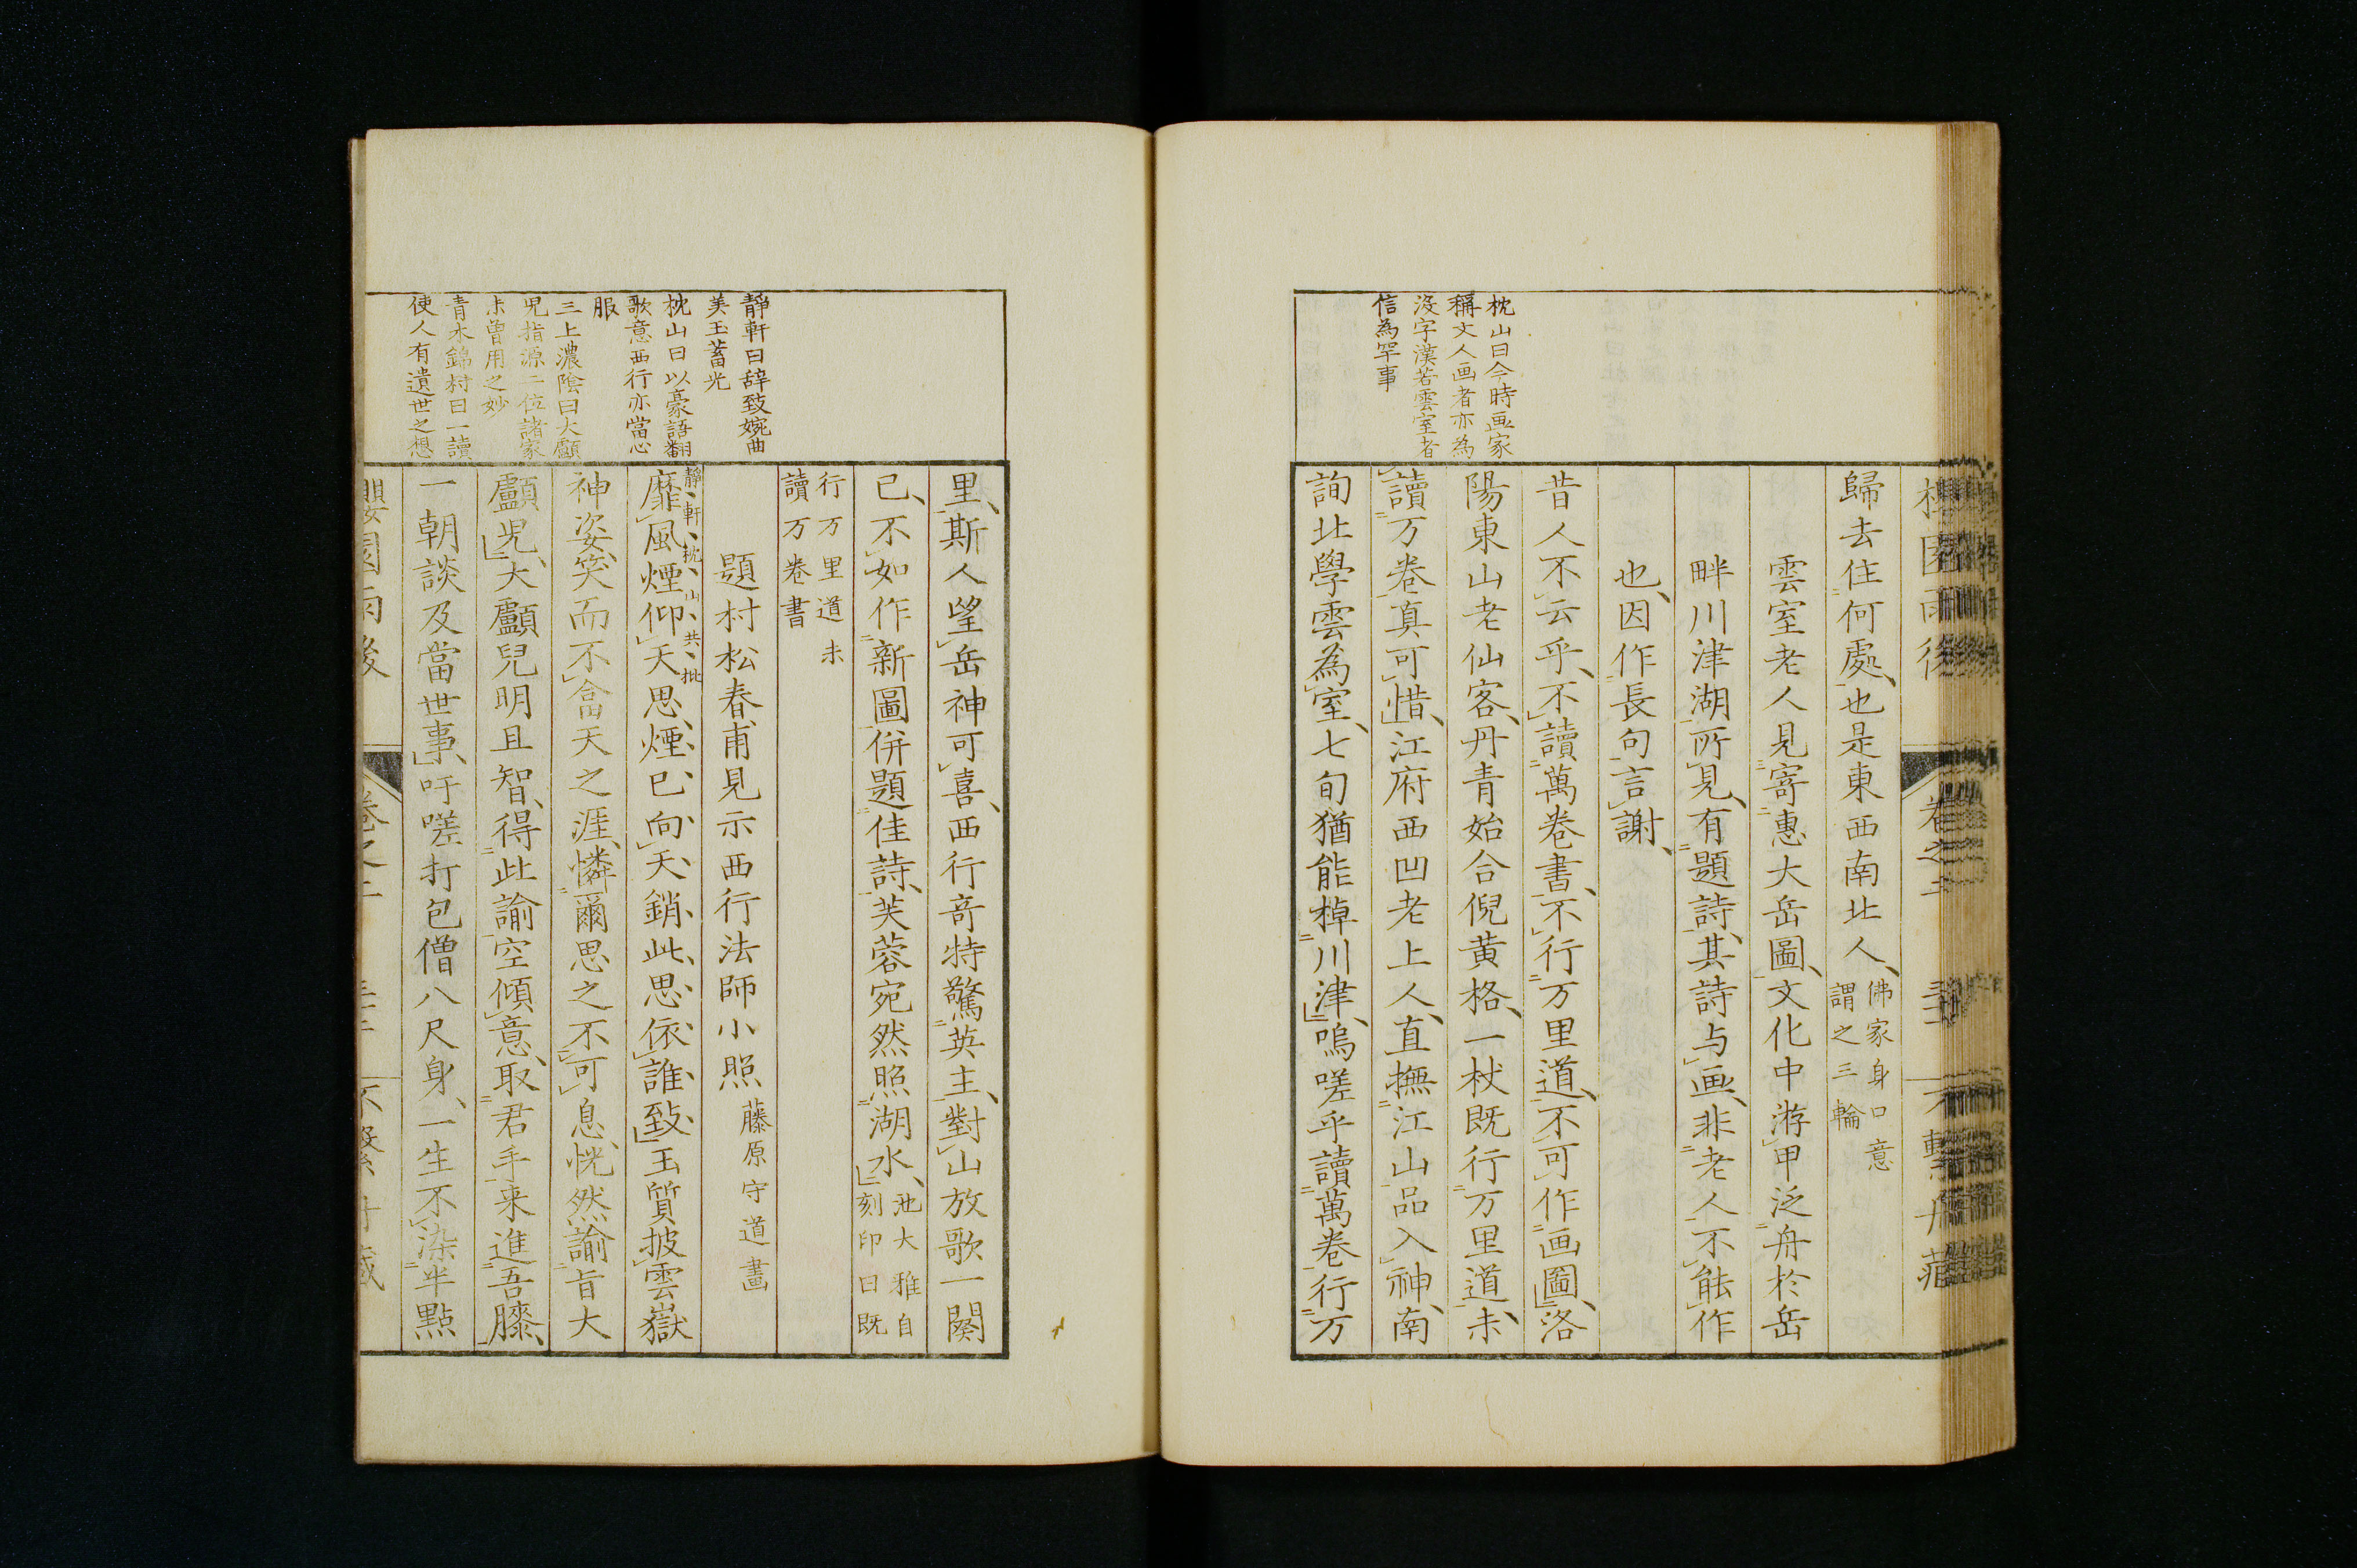 枕山曰今時画家
稱文人画者亦為
没字漢若雲室者
信為罕事
歸去住何處也是東西南北人
佛家身口意
謂之三輪
雲室老人見寄惠大岳圖文化中游甲泛舟於岳
畔川津湖所見有題詩其詩与画非老人不能作
也因作長句言謝
昔人不云乎不讀萬卷書不行万里道不可作画圖洛
陽東山老仙客丹青始合倪黄格一杖既行万里道未
讀万卷真可惜江府西凹老上人直撫江山品入神南
詢北學雲為室七旬猶能棹川津嗚嗟乎讀萬卷行万
靜軒曰辞致婉曲
美玉蓄光
枕山曰以豪語翻
歌意西行亦當心
服
三上濃陰曰大顱
児指源二位諸家
未曽用之妙
青木錦村曰一讀
使人有遺世之想
里斯人望岳神可喜西行竒特驚英主對山放歌一闋
已不如作新圖併題佳詩芙蓉宛然照湖水
池大雅自
刻印曰既
行万里道未
讀万卷書
題村松春甫見示西行法師小照
藤原守道畫
靜軒枕山共批
靡風煙仰天思煙已向天銷此思依誰致玉質披雲嶽
神姿笑而不畣天之涯憐爾思之不可息恍然諭旨大
顱児大顱兒明且智得此諭空傾意取君手来進吾膝
一朝談及當世事吁嗟打包僧八尺身一生不染半點